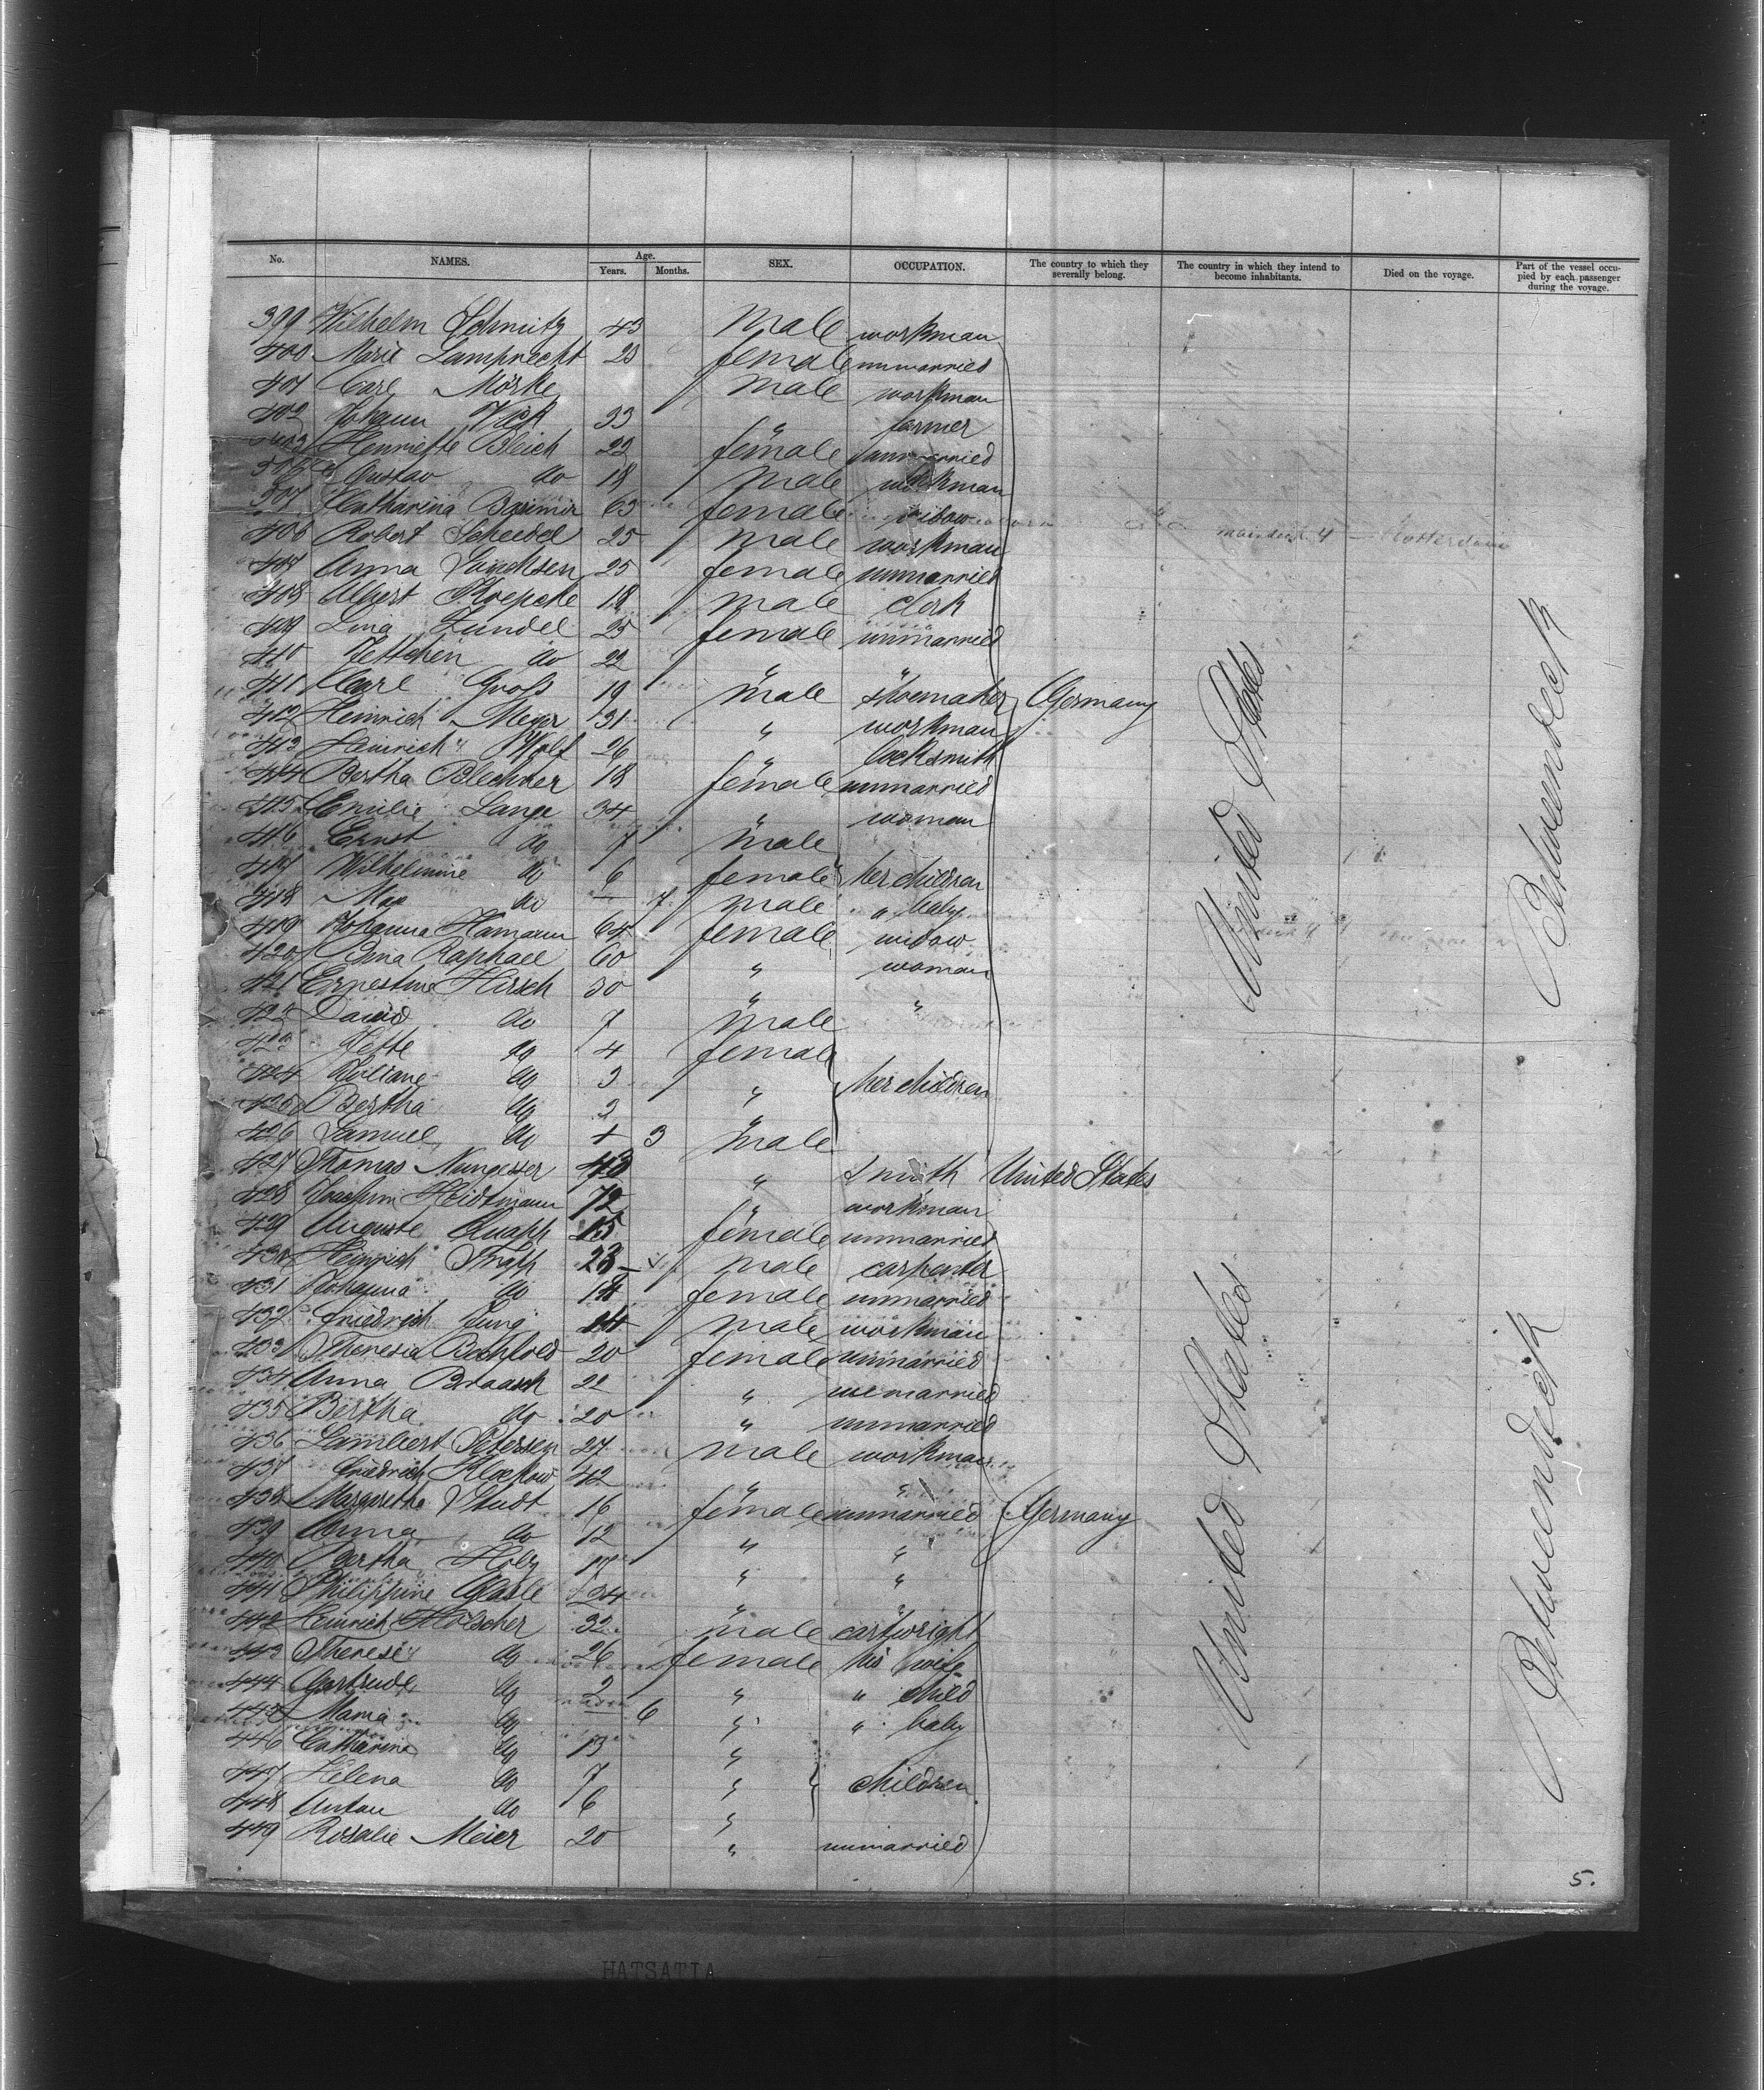 No. NAMES. Age. Years. Months. SEX. OCCUPATION. The country to which they severally belong. The country in which they intend to become inhabitants. Died on the voyage. Part of the vessel occupied by each passenger during the voyage.
399 Wilhelm Schmitz 43 male workman
400 Marie Lamprecht 23 female unmarried
401 Carl Mörke male workman
402 Johann Vick 33 " farmer
403 Henriette Bleich 22 female unmarried
Gustav do 18 male workman
Catharina 63 female widow
406 Robert Scheidel 25 male workman
407 Anna 25 female unmarried
408 Albert Koepcke 18 male clerk
409 Lina Zundel 25 female unmarried
410 Jettchen do 22 " "
411 Carl Gross 19 male shoemaker Germany
412 Heinrich Meyer 31 " workman
413 Heinrich Wolf 26 " locksmith
414 Bertha Blechner 18 female unmarried
415 Emilie Lange 34 " woman
416 Ernst do 7 male
417 Wilhelmine do 6 female her children
418 Max do — 7 male " baby
419 Johanna Hamann 64 female widow
420 Dina Raphael 60 " woman
421 Ernestine Hirsch 30 " "
422 David do 7 male
423 Jette do 4 female
424 Juliane do 3 " her children
425 Bertha do 2 "
426 Samuel do + 3 male
427 Thomas Nungesser 43 " smith United States
428 Joachim Heidtmann 72 " workman
429 Auguste Quapp 15 female unmarried
430 Heinrich 23 male carpenter
431 Johanna do 18 female unmarried
432 Friedrich Jung 14 male workman
433 Theresia 20 female unmarried
434 Anna Braasch 22 " unmarried
435 Bertha do 20 " unmarried
436 Lambert Petersen 27 male workman
437 Friedrich Klockow 42 " "
438 Margaretha Studt 16 female unmarried Germany
439 Anna do 12 " "
440 Bertha 17 " "
441 Philippine 24 " "
442 Heinrich Hölscher 32 male cartwright
443 Therese do 26 female his wife
444 Gertrude do 2 " " child
445 Maria do — 6 " " baby
446 Catharina do 13 "
447 Helena do 7 " children
448 Anton do 6 "
449 Rosalie Meier 20 " unmarried
United States
Betweendeck
United States
Betweendeck
5.
HATSATIA